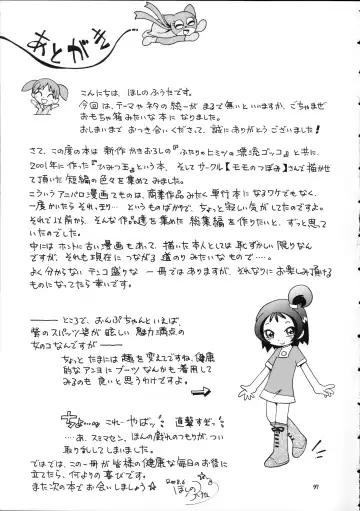 あとがき
こんにちは、ほしのふうたです。
今回は、テーマやネタの統一がまるで無いといいますか、ごちゃまぜ
おもちゃ箱みたいな本になりました。
おしまいまでおつき合いくださって、誠にありがとうございました!
さて、この度の本は新作かきおろしの『ふたりのヒミツの漂流ゴッコ』と共に、
2001年に作った『ひみつ玉』という本、そしてサークル【モモのつぼみ】さんで描かせ
て頂いた短編の色々を集めてみました。
こういうアニパロ漫画てものは、商業作品みたく単行本になるワケでもなく、
一度かいたらそれっきり…というものばかりで、ちょっと寂しい気がしてたのですよ。
それで以前から、そんな作品達を集めた総集編を作りたいと、ずっと思って
いたのでした。
中にはホントに古い漫画もあって、描いた本人としては恥ずかしい限りなん
ですが、それも現在につながる道のりみたいなもので…。
よく分からないテンコ盛りな一冊ではありますが、それなりにお楽しみ頂ける
ものになってたら幸いです。
ところで、おんぷちゃんといえば、
皆のスパッツ姿が眩しい魅力満点
の女のコなんですが
ちょっとたまには趣を変えてですね、健康
的なアンヨにブーツなんかも着用して
みるのも良いと思うわけですよ。
これーやばッ 直撃すぎッ。
……あ、スミマセン、ほんの戯れのつもりが、つい
取り乱してしまいました。
ではでは、この一冊が皆様の健康な毎日のお役に
立てたら、何よりの喜びです。
また次の本でお会いしましょう☆
2008.6 ほしのふうた
97